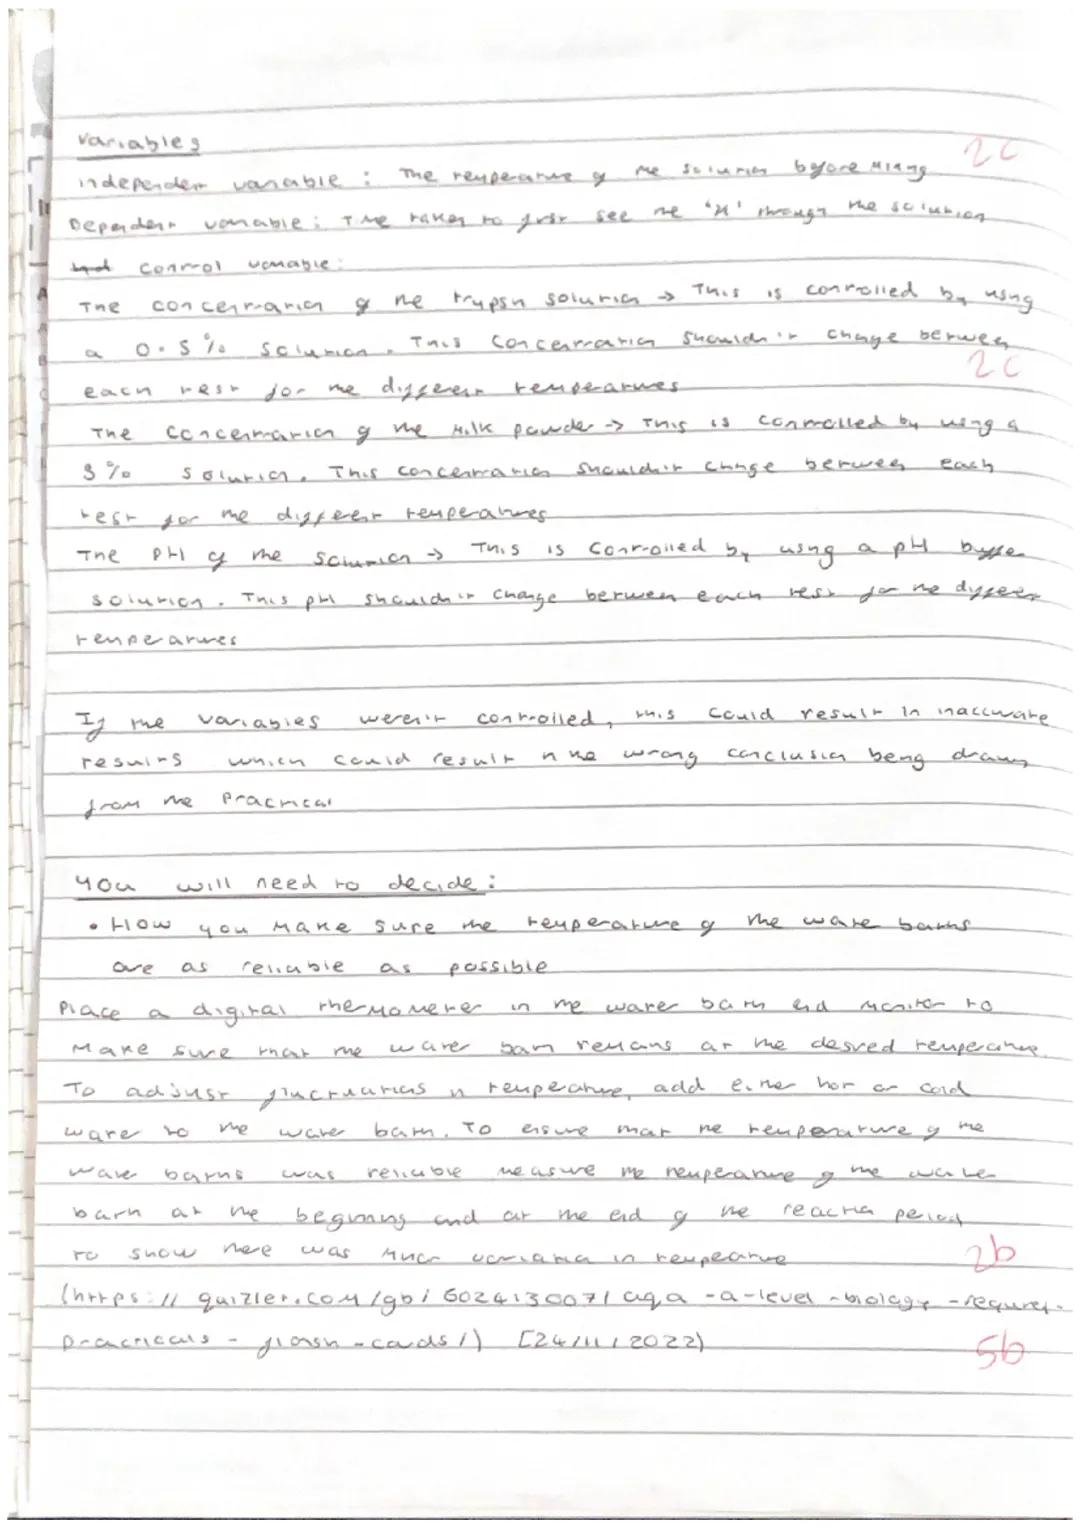 Variables
2c
independent variable : The temperature of the solution before mixing
Dependent variable : Time taken to first see the 'X' through the solution
control variable :
The concentration of the trypsin solution → This is controlled by using
a 0.5% solution. This concentration shouldn't change between
2c
each test for the different temperatures
The concentration of the milk powder → This is controlled by using a
3% solution. This concentration shouldn't change between each
test for the different temperatures
The pH of the solution → This is controlled by using a pH buffer
solution. This pH shouldn't change between each test for the different
temperatures
If the variables weren't controlled, this could result in inaccurate
results which could result in the wrong conclusion being drawn
from the practical
You will need to decide :
• How you make sure the temperature of the water baths
are as reliable as possible
Place a digital thermometer in the water bath and monitor to
make sure that the water bath remains at the desired temperature.
To adjust fluctuations in temperature, add either hot or cold
water to the water bath. To ensure that the temperature of the
water baths was reliable measure the temperature of the water
bath at the beginning and at the end of the reaction period
to show there was variation in temperature
2b
(https://quizlet.com/gb/602413007/aqa-a-level-biology-required-
practicals-flash-cards/) [24/11/2022)
5b